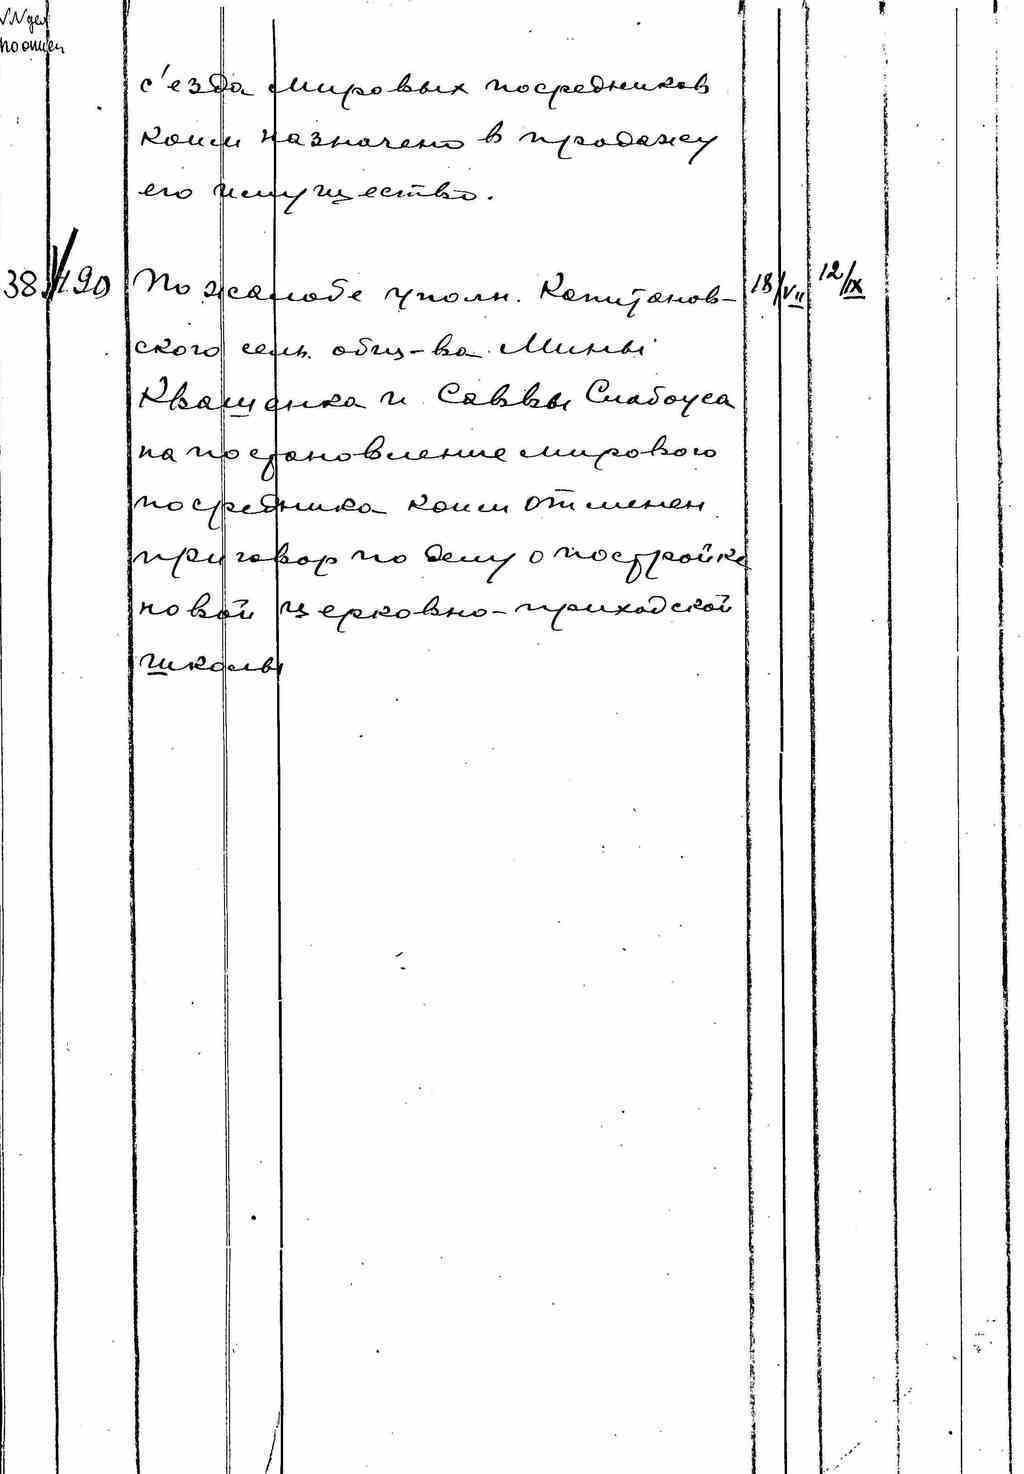 №№ дел
по описи
с'езда мировых посредников
коим назначено в продажу
его имущество.
38. 190 По жалобе уполн. Капитанов- 18/VII 12/IX
ского сельск. общ-ва Мины
Кващенка и Саввы Слабоуса
на постановление мирового
посредника коим отменен
приговор по делу о постройке
новой церковно-приходской
школы